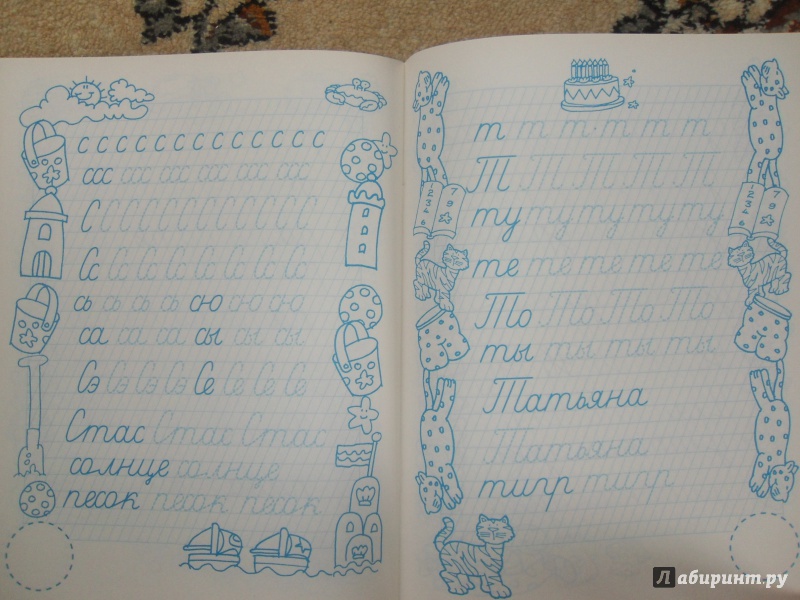 с с с с с с с с с с с с с
ссс ссс ссс ссс ссс ссс
С С С С С С С С С С С
Сс Сс Сс Сс Сс Сс Сс
сь сь сь сь сю сю сю
са са са са сы сы сы
Сэ Сэ Сэ Сэ Се Се Се Се
Стас Стас Стас
солнце солнце
песок песок песок
т т т т т т
Т Т Т Т Т Т
ту ту ту ту ту
те те те те те
То То То То
ты ты ты ты
Татьяна
Татьяна
тигр тигр
Лабиринт.ру